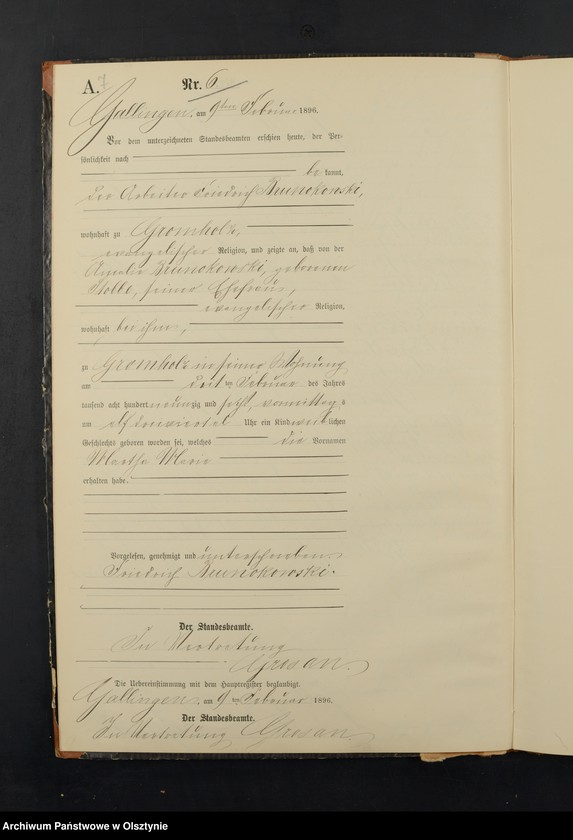 A. 7
Nr. 6
Gallingen, am 9ten Februar 1896.
Vor dem unterzeichneten Standesbeamten erschien heute, der Per-
sönlichkeit nach
be kannt,
der Arbeiter Friedrich
wohnhaft zu Gromholz,
evangelischer Religion, und zeigte an, daß von der
Amalie geborenen
seiner Ehefrau,
evangelischer Religion,
wohnhaft bei ihm,
zu Gromholz in seiner Wohnung
am ten Februar des Jahres
tausend acht hundert neunzig und sechs, vormittags
um Uhr ein Kind weiblichen
Geschlechts geboren worden sei, welches die Vornamen
Martha Marie
erhalten habe.
Vorgelesen, genehmigt und unterschrieben
Friedrich
Der Standesbeamte.
In Vertretung
Grosan
Die Uebereinstimmung mit dem Hauptregister beglaubigt.
Gallingen, am 9 ten Februar 1896.
Der Standesbeamte.
In Vertretung Grosan
Archiwum Państwowe w Olsztynie